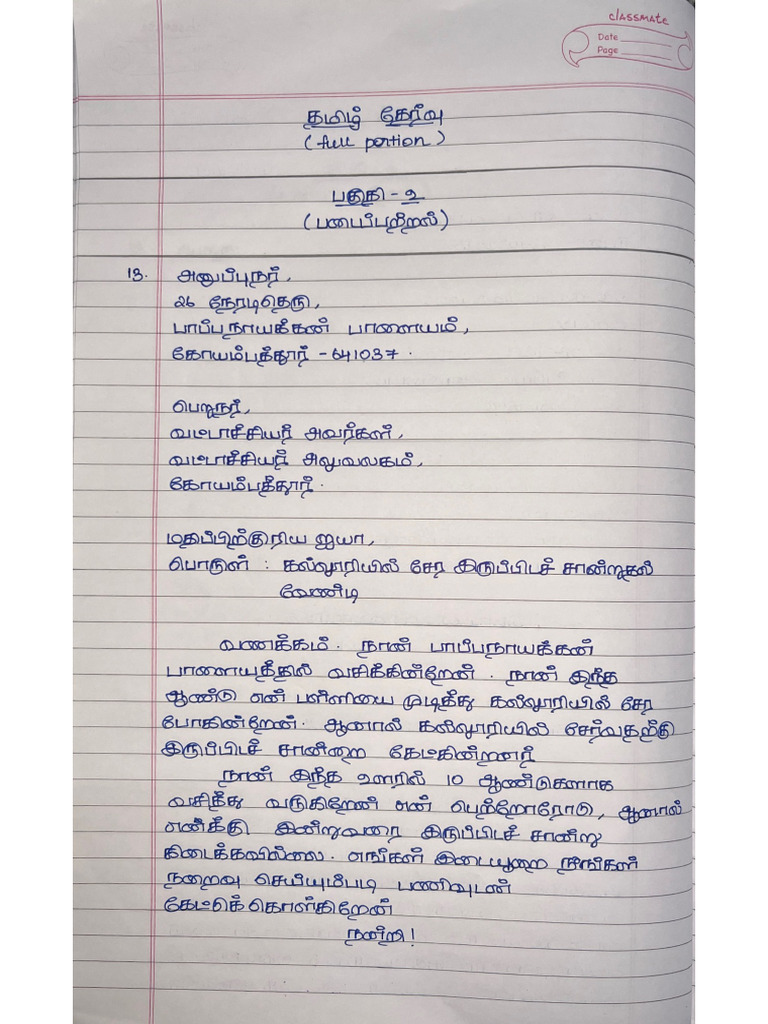 classmate
Date
Page
தமிழ் தேர்வு
(full portion)
பகுதி - 2
(படைப்பாற்றல்)
13. அனுப்புநர்,
26 நேரடிதெரு,
பாப்பநாயக்கன் பாளையம்,
கோயம்பத்தூர் - 641037.
பெறுநர்,
வட்டாச்சியர் அவர்கள்,
வட்டாச்சியர் அலுவலகம்,
கோயம்பத்தூர்.
மதப்பிற்குரிய ஐயா,
பொருள் : கல்லூரியில் சேர இருப்பிடச் சான்றுகல்
வேண்டி
வணக்கம். நான் பாப்பநாயக்கன்
பாளையத்தில் வசிக்கின்றேன். நான் இந்த
ஆண்டு என் பள்ளியை முடித்து கல்லூரியில் சேர
போகின்றேன். ஆனால் கல்லூரியில் சேர்வதற்கு
இருப்பிடச் சான்றை கேட்கின்றனர்
நான் இந்த ஊரில் 10 ஆண்டுகளாக
வசித்து வருகிறேன் என் பெற்றோரோடு, ஆனால்
எனக்கு இன்றுவரை இருப்பிடச் சான்று
கிடைக்கவில்லை. எங்கள் இடையூறை நீங்கள்
நறைவு செய்யும்படி பணிவுடன்
கேட்டுக் கொள்கிறேன்
நன்றி!